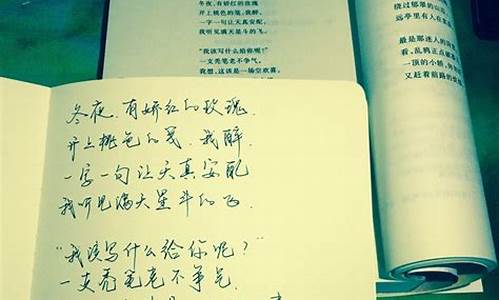 冬夜,有娇红的玫瑰
开上桃色的笺,我醉,
一字一句让天真安配,
我听见满天星斗的飞。
"我该写什么给你呢?"
一支秃笔老不争气。
我想,这该是一场空欢喜。
绕过郁翠的山
远亭里有人在
最是那迷人的
看,乱鸦正点破
一顶的小轿,
又赶着前路的
冬夜,有娇红的玫瑰,
开上桃色的笺,我醉,
一字一句让天真安配
我听见满天星斗的飞
"我该写什么给你呢?"
一支秃笔老不争气